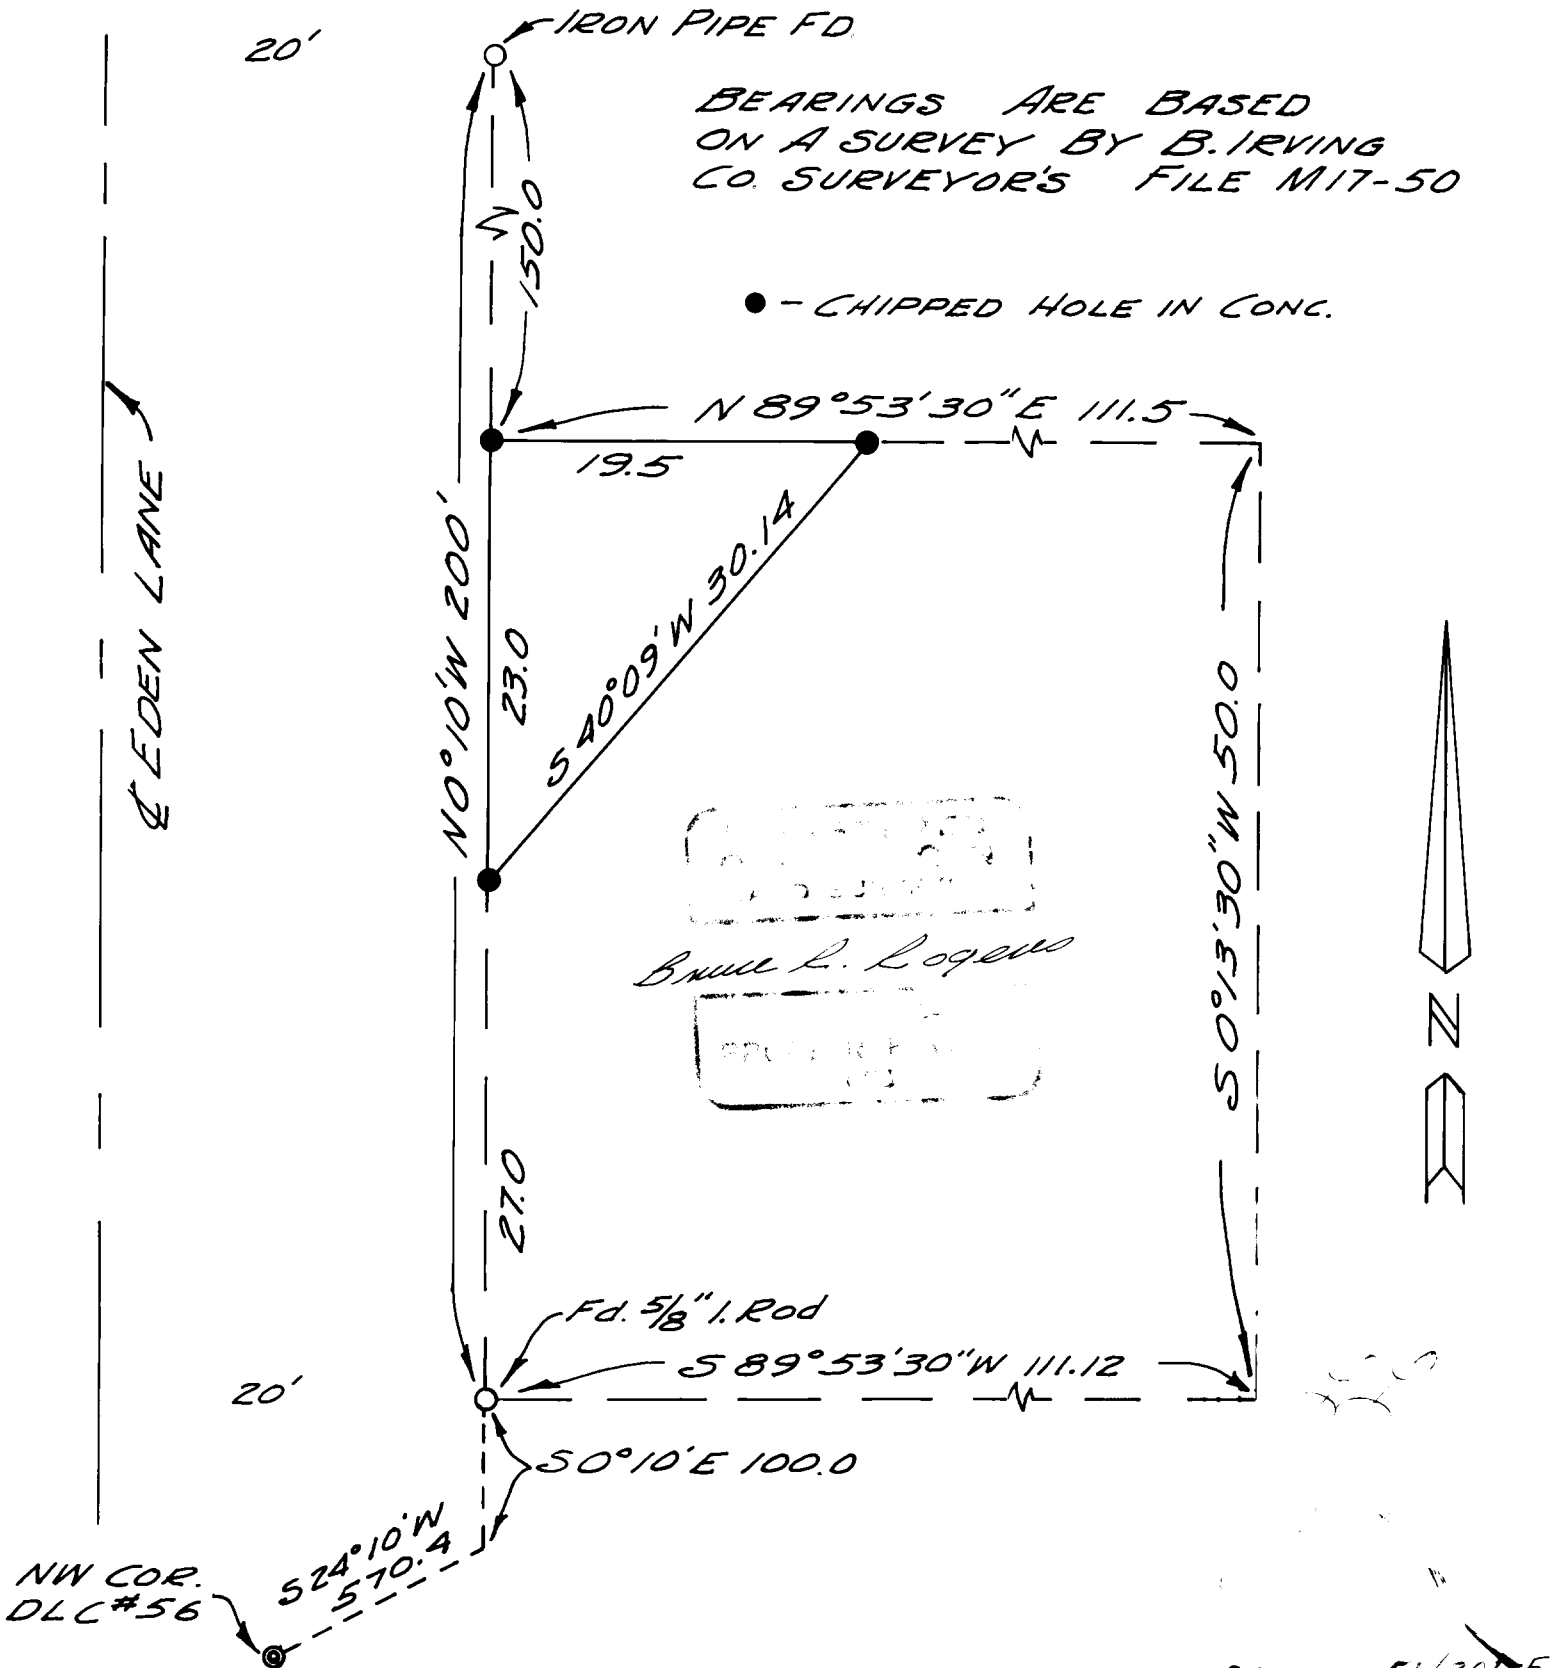 20'
IRON PIPE FD.
BEARINGS ARE BASED
ON A SURVEY BY B. IRVING
CO. SURVEYOR'S FILE M17-50
150.0
● - CHIPPED HOLE IN CONC.
N 89°53'30"E 111.5
19.5
℄ EDEN LANE
N0°10'W 200'
23.0
S 40°09'W 30.14
S 0°13'30"W 50.0
Bruce R. Rogers
N
27.0
Fd. 5/8" I. Rod
S 89°53'30"W 111.12
20'
S0°10'E 100.0
S24°10'W
570.4
NW COR.
DLC #56